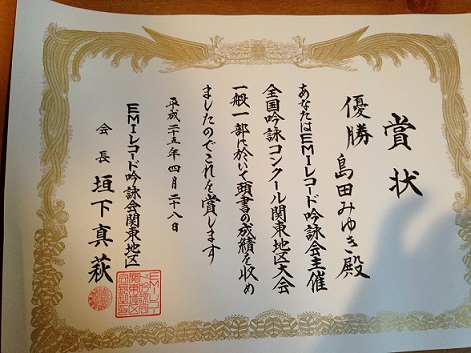 賞状
優勝 島田みゆき殿
あなたはEMIレコード吟詠会主催
全国吟詠コンクール関東地区大会
一般一部に於いて頭書の成績を収め
ましたのでこれを賞します
平成二十五年四月二十八日
EMIレコード吟詠会関東地区
会長 垣下真萩